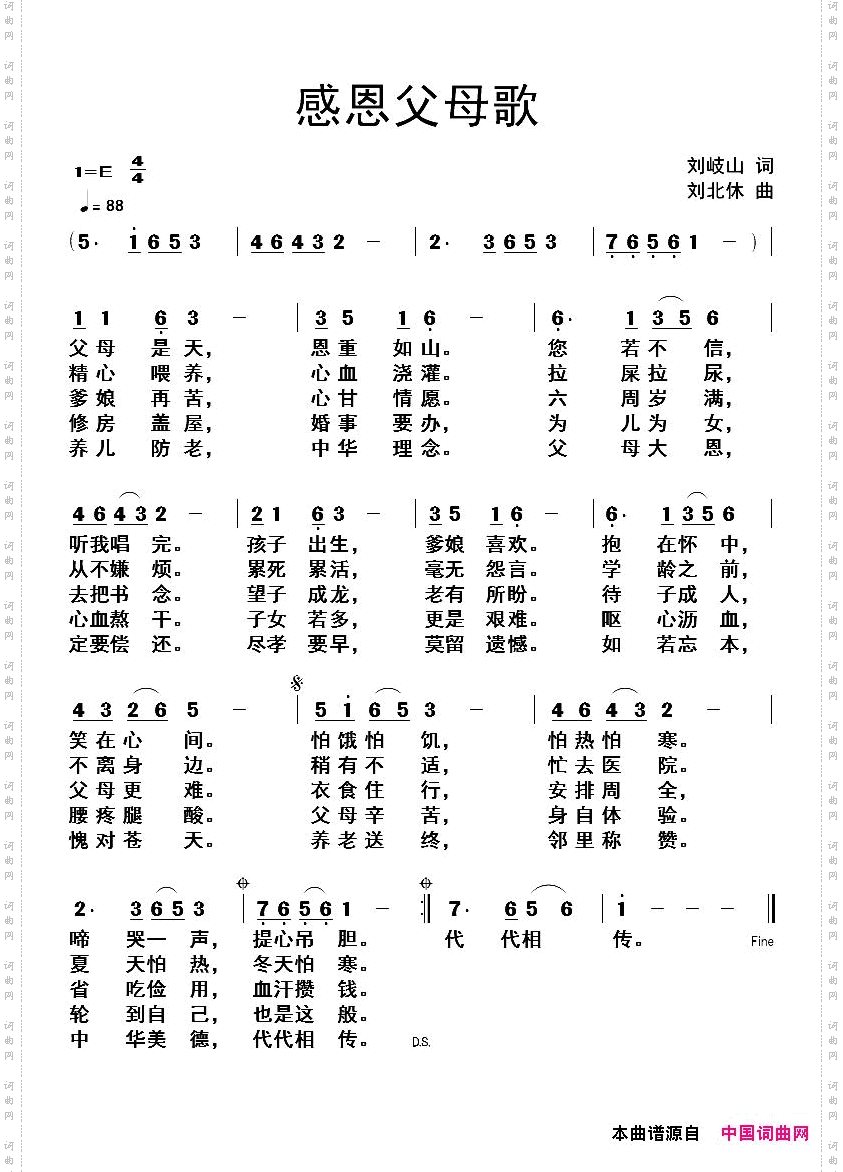 感恩父母歌
1=E 4/4
刘岐山 词
♩= 88
刘北休 曲
(5· 1653 | 46432 － | 2· 3653 | 76561 － ) |
1 1 6 3 － | 3 5 1 6 － | 6· 1 3 5 6 |
父母 是天， 恩重 如山。 您 若不 信，
精心 喂养， 心血 浇灌。 拉 屎拉 尿，
爹娘 再苦， 心甘 情愿。 六 周岁 满，
修房 盖屋， 婚事 要办， 为 儿为 女，
养儿 防老， 中华 理念。 父 母大 恩，
46432 － | 21 63 － | 35 16 － | 6· 1356 |
听我唱 完。 孩子 出生， 爹娘 喜欢。 抱 在怀 中，
从不嫌 烦。 累死 累活， 毫无 怨言。 学 龄之 前，
去把书 念。 望子 成龙， 老有 所盼。 待 子成 人，
心血熬 干。 子女 若多， 更是 艰难。 呕 心沥 血，
定要偿 还。 尽孝 要早， 莫留 遗憾。 如 若忘 本，
4 3 2 6 5 － | 5 1 6 5 3 － | 4 6 4 3 2 － |
笑在心 间。 怕饿怕 饥， 怕热怕 寒。
不离身 边。 稍有不 适， 忙去医 院。
父母更 难。 衣食住 行， 安排周 全，
腰疼腿 酸。 父母辛 苦， 身自体 验。
愧对苍 天。 养老送 终， 邻里称 赞。
2· 3653 | 76561 － :‖ 7· 65 6 | 1 － － － ‖
啼 哭一 声， 提心吊 胆。 代 代相 传。 Fine
夏 天怕 热， 冬天怕 寒。
省 吃俭 用， 血汗攒 钱。
轮 到自 己， 也是这 般。
中 华美 德， 代代相 传。 D.S.
本曲谱源自 中国词曲网